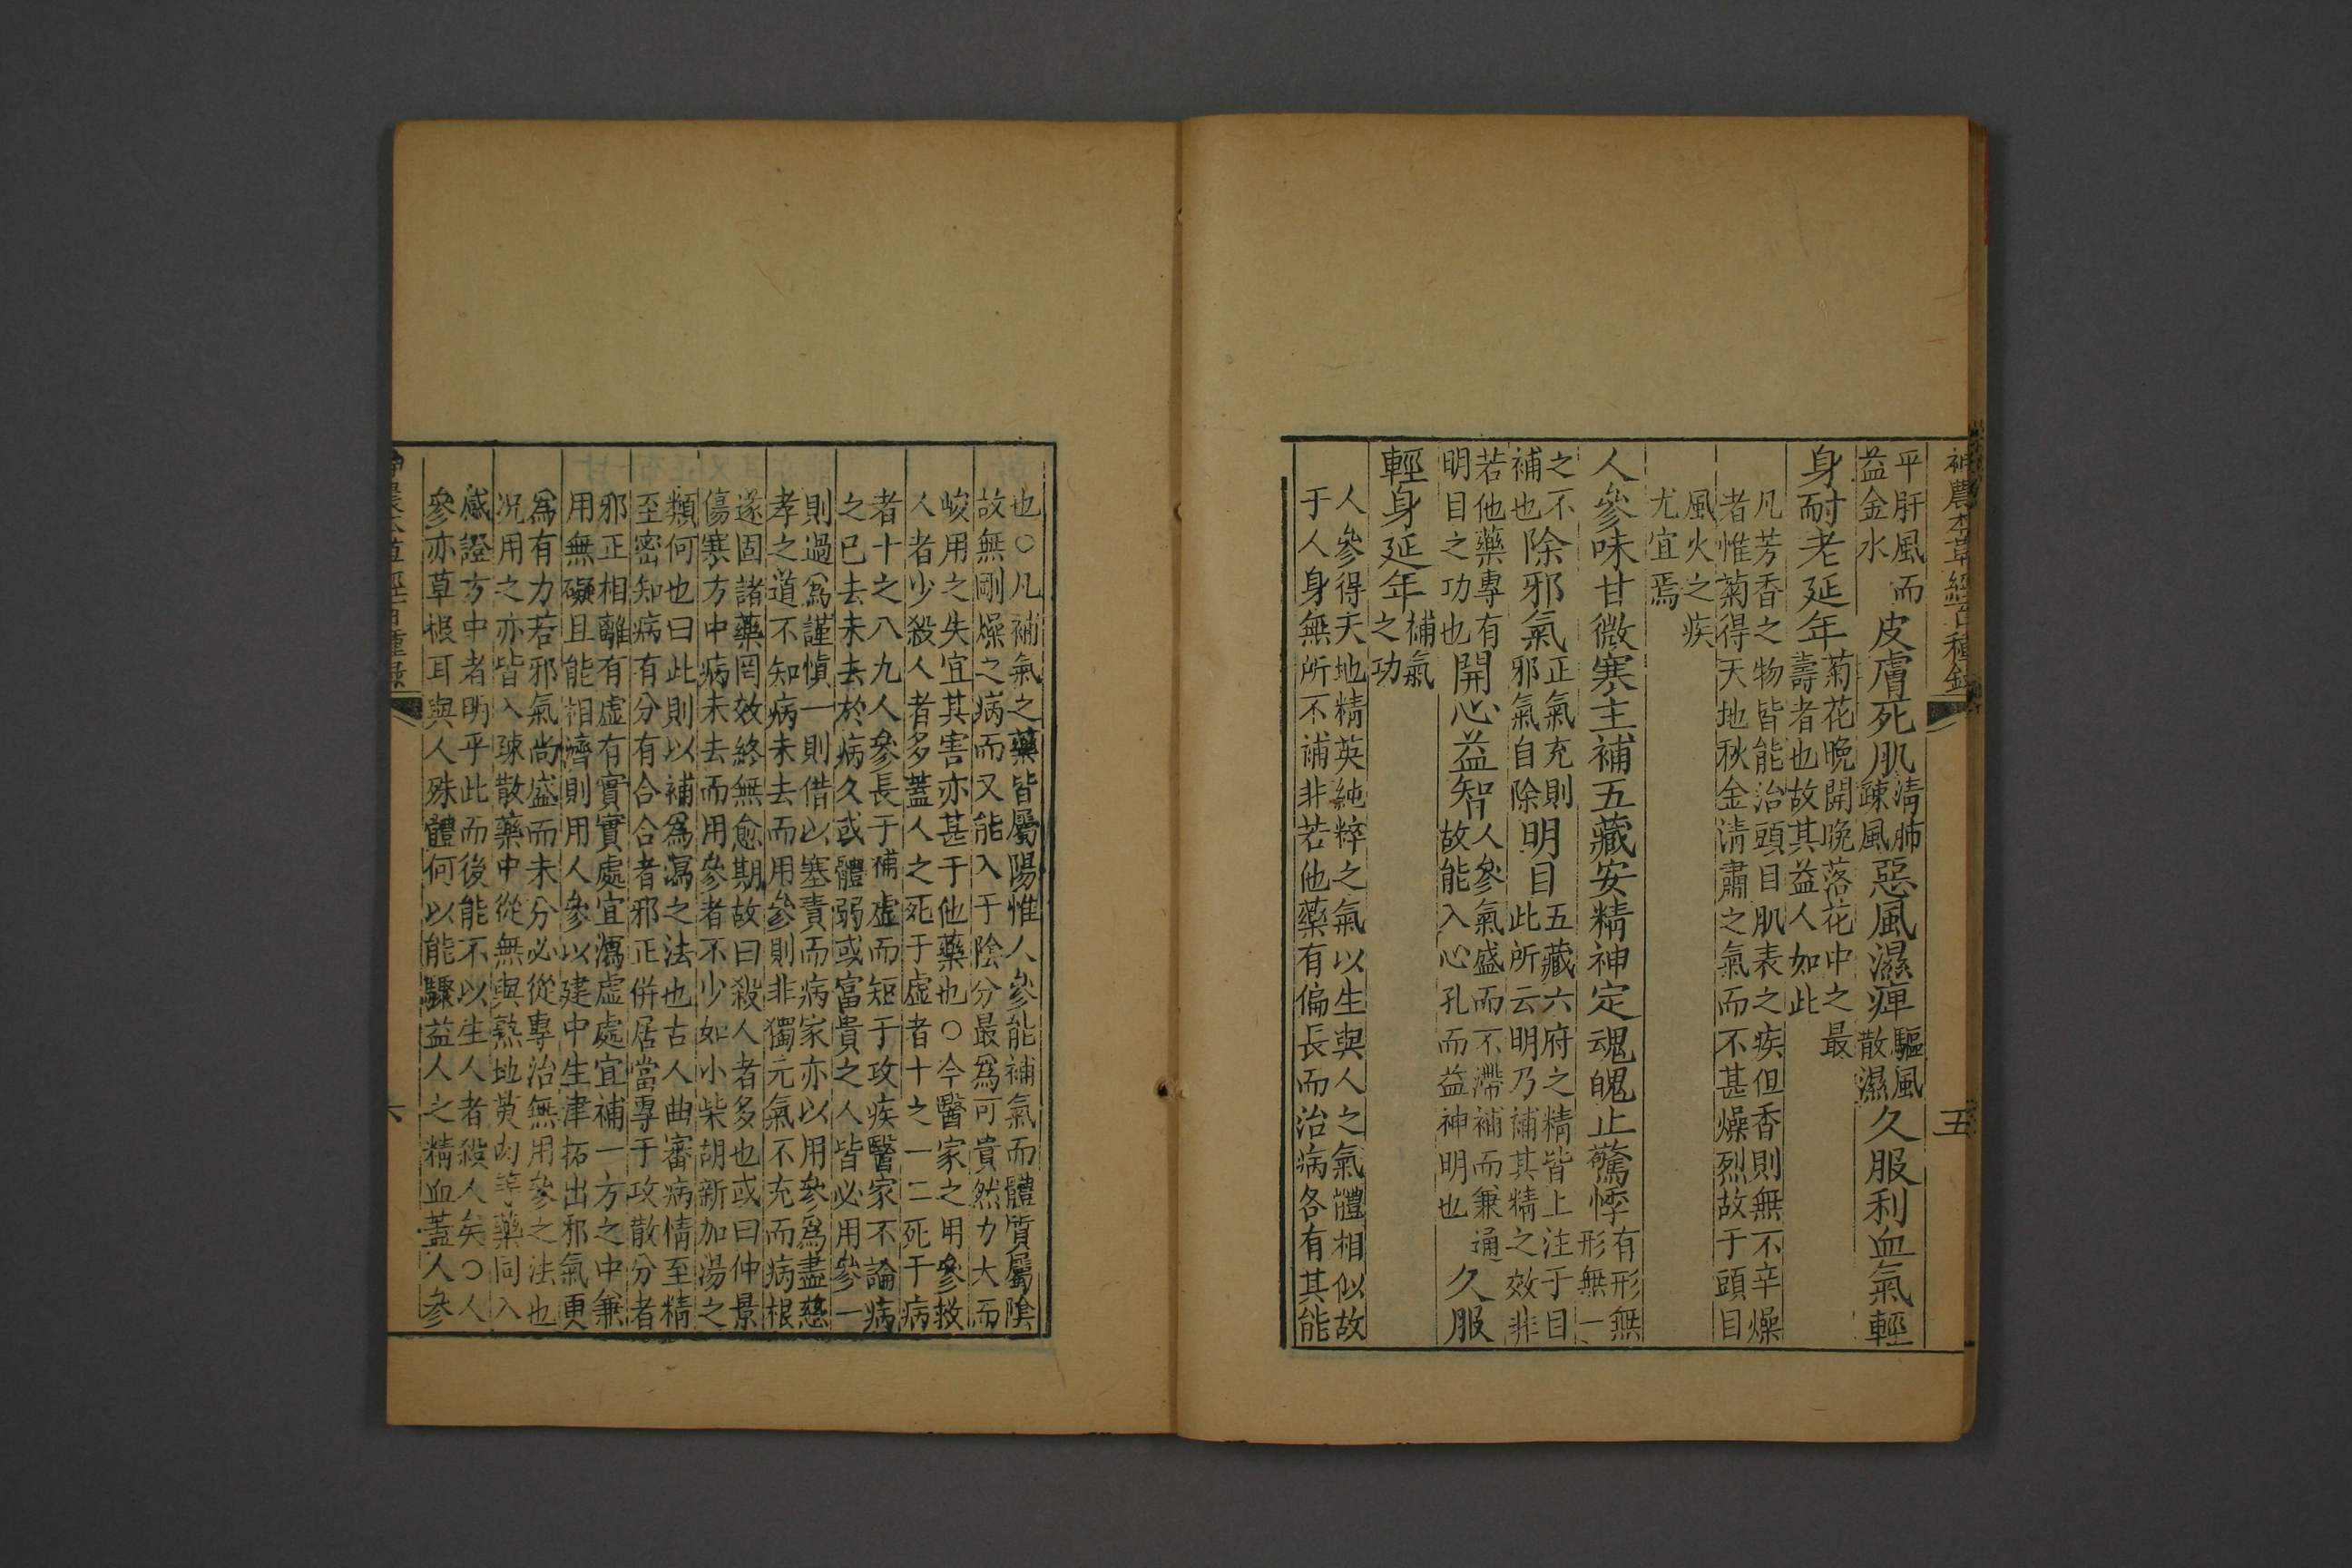 神農本草經百種錄
五
平肝風而
益金水
皮膚死肌
清肺
疎風
惡風濕痺
驅風
散濕
久服利血氣輕
身耐老延年
菊花晚開晚落花中之最
壽者也故其益人如此
凡芳香之物皆能治頭目肌表之疾但香則無不辛燥
者惟菊得天地秋金清肅之氣而不甚燥烈故于頭目
風火之疾
尤宜焉
人參味甘微寒主補五藏安精神定魂魄止驚悸
有形無
形無一
之不
補也
除邪氣
正氣充則
邪氣自除
明目
五藏六府之精皆上注于目
此所云明乃補其精之效非
若他藥專有
明目之功也
開心益智
人參氣盛而不滯補而兼通
故能入心孔而益神明也
久服
輕身延年
補氣
之功
人參得天地精英純粹之氣以生與人之氣體相似故
于人身無所不補非若他藥有偏長而治病各有其能
也○凡補氣之藥皆屬陽惟人參能補氣而體質屬陰
故無剛燥之病而又能入于陰分最爲可貴然力大而
峻用之失宜其害亦甚于他藥也○今醫家之用參救
人者少殺人者多蓋人之死于虛者十之一二死于病
者十之八九人參長于補虛而短于攻疾醫家不論病
之已去未去於病久或體弱或富貴之人皆必用參一
則過爲謹慎一則借以塞責而病家亦以用參爲盡慈
孝之道不知病未去而用參則非獨元氣不充而病根
遂固諸藥罔效終無愈期故曰殺人者多也或曰仲景
傷寒方中病未去而用參者不少如小柴胡新加湯之
類何也曰此則以補爲瀉之法也古人曲審病情至精
至密知病有分有合合者邪正併居當專于攻散分者
邪正相離有虛有實實處宜瀉虛處宜補一方之中兼
用無礙且能相濟則用人參以建中生津拓出邪氣更
爲有力若邪氣尚盛而未分必從專治無用參之法也
況用之亦皆入疎散藥中從無與熟地萸肉等藥同入
感證方中者明乎此而後能不以生人者殺人矣○人
參亦草根耳與人殊體何以能驟益人之精血蓋人參
神農本草經百種錄
六